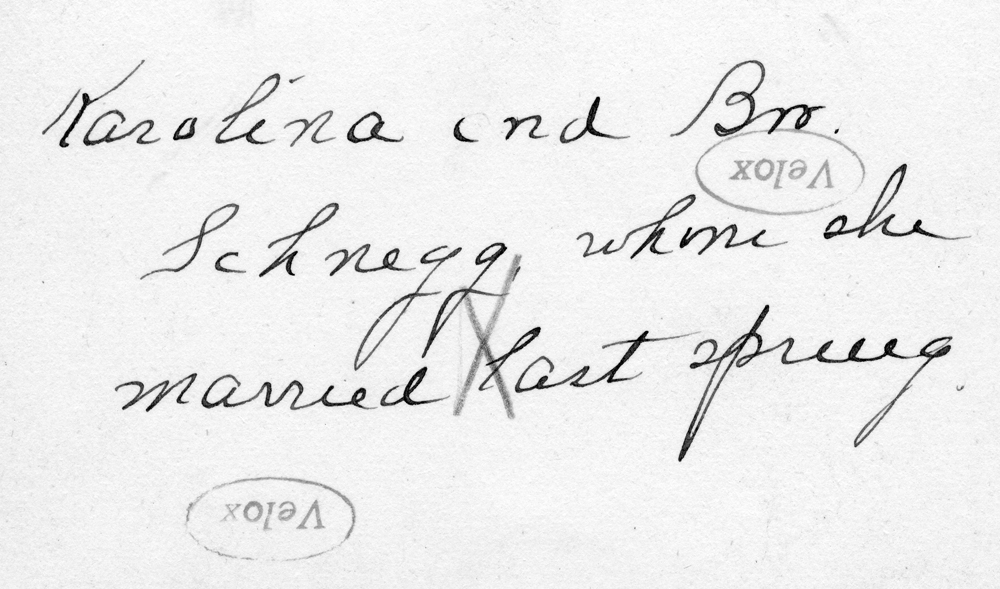 Karolina and Bro.
Velox
Schnegg, whom she
married last spring.
Velox